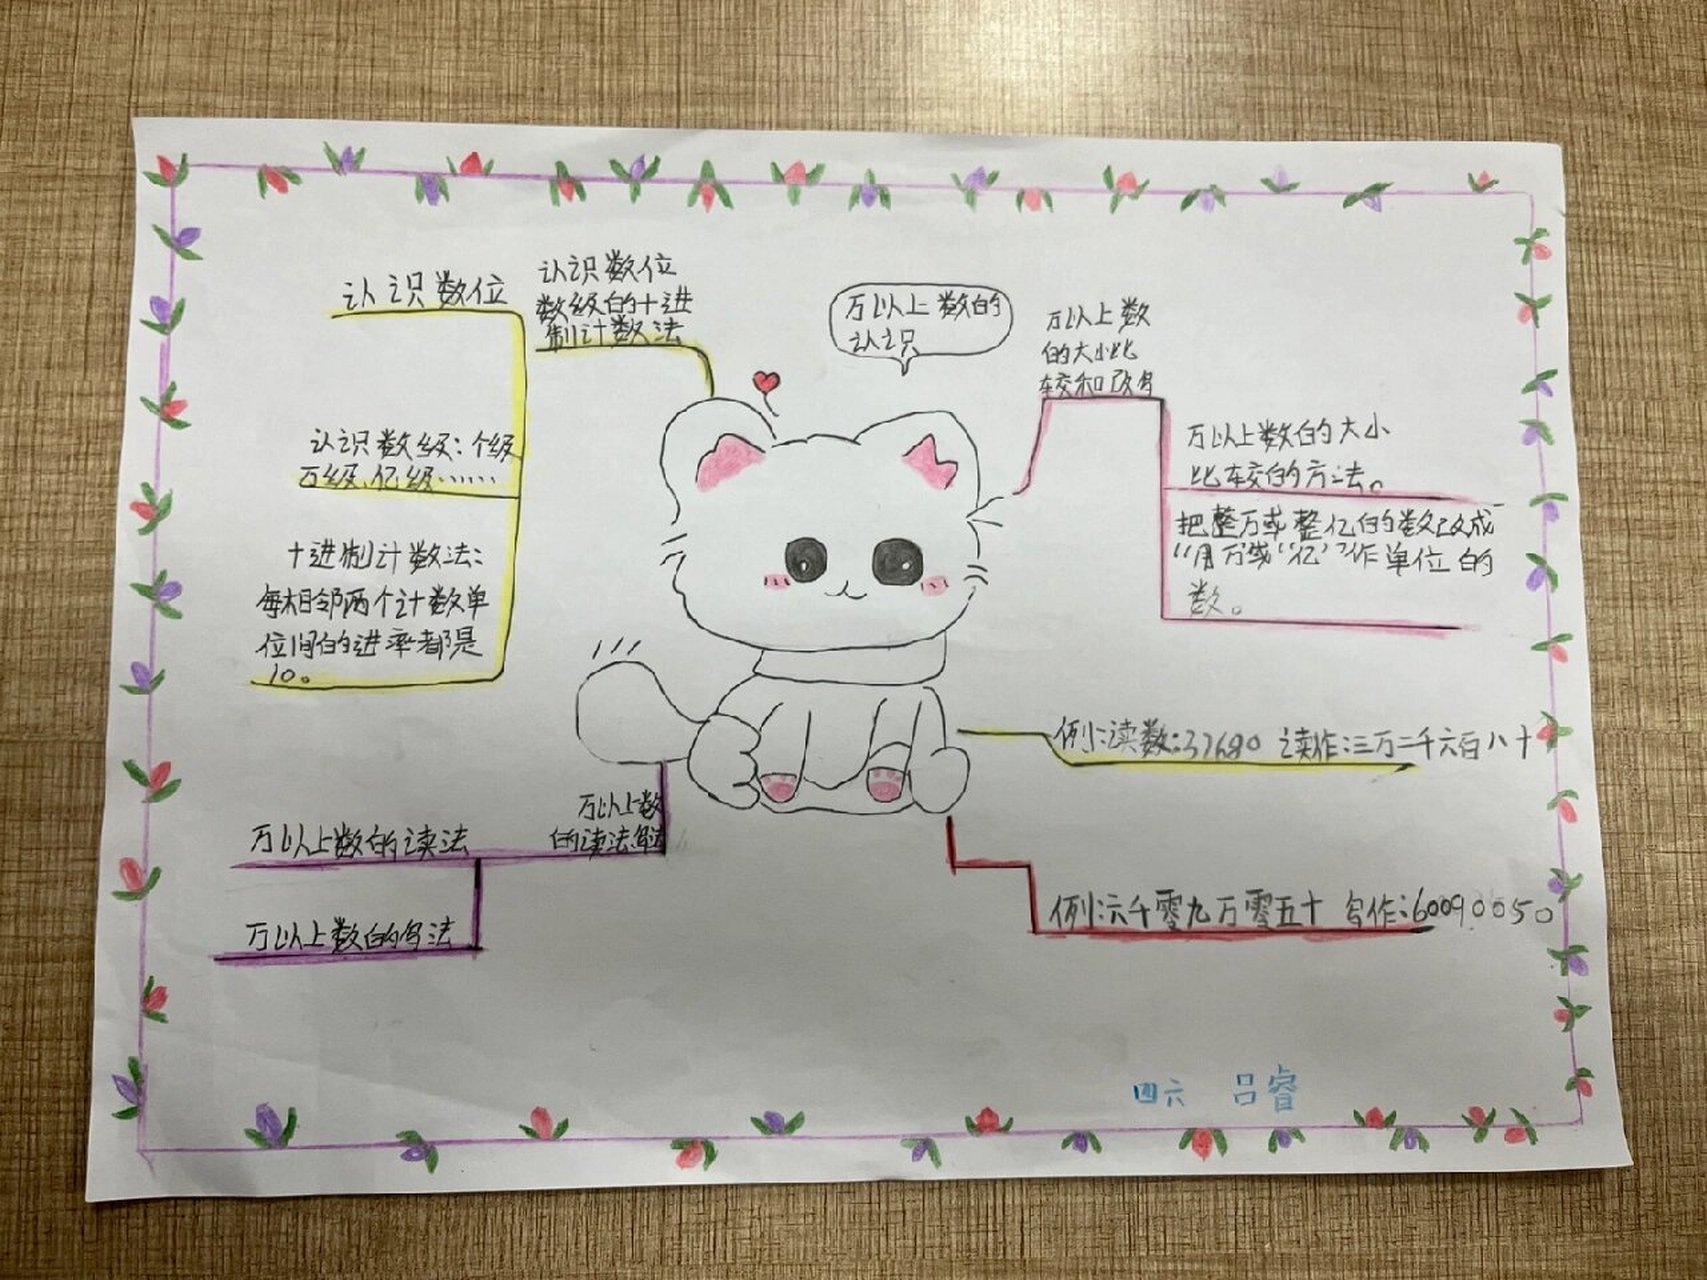 万以上数的
认识
认识数位
数级的十进
制计数法
认识数位
认识数级：个级
万级、亿级……
十进制计数法：
每相邻两个计数单
位间的进率都是
10。
万以上数
的大小比
较和改写
万以上数的大小
比较的方法。
把整万或整亿的数改成
“用万或“亿”作单位的
数。
例：读数：32680 读作：三万二千六百八十
例：六千零九万零五十 写作：60090050
万以上数
的读法写法
万以上数的读法
万以上数的写法
四六 吕睿